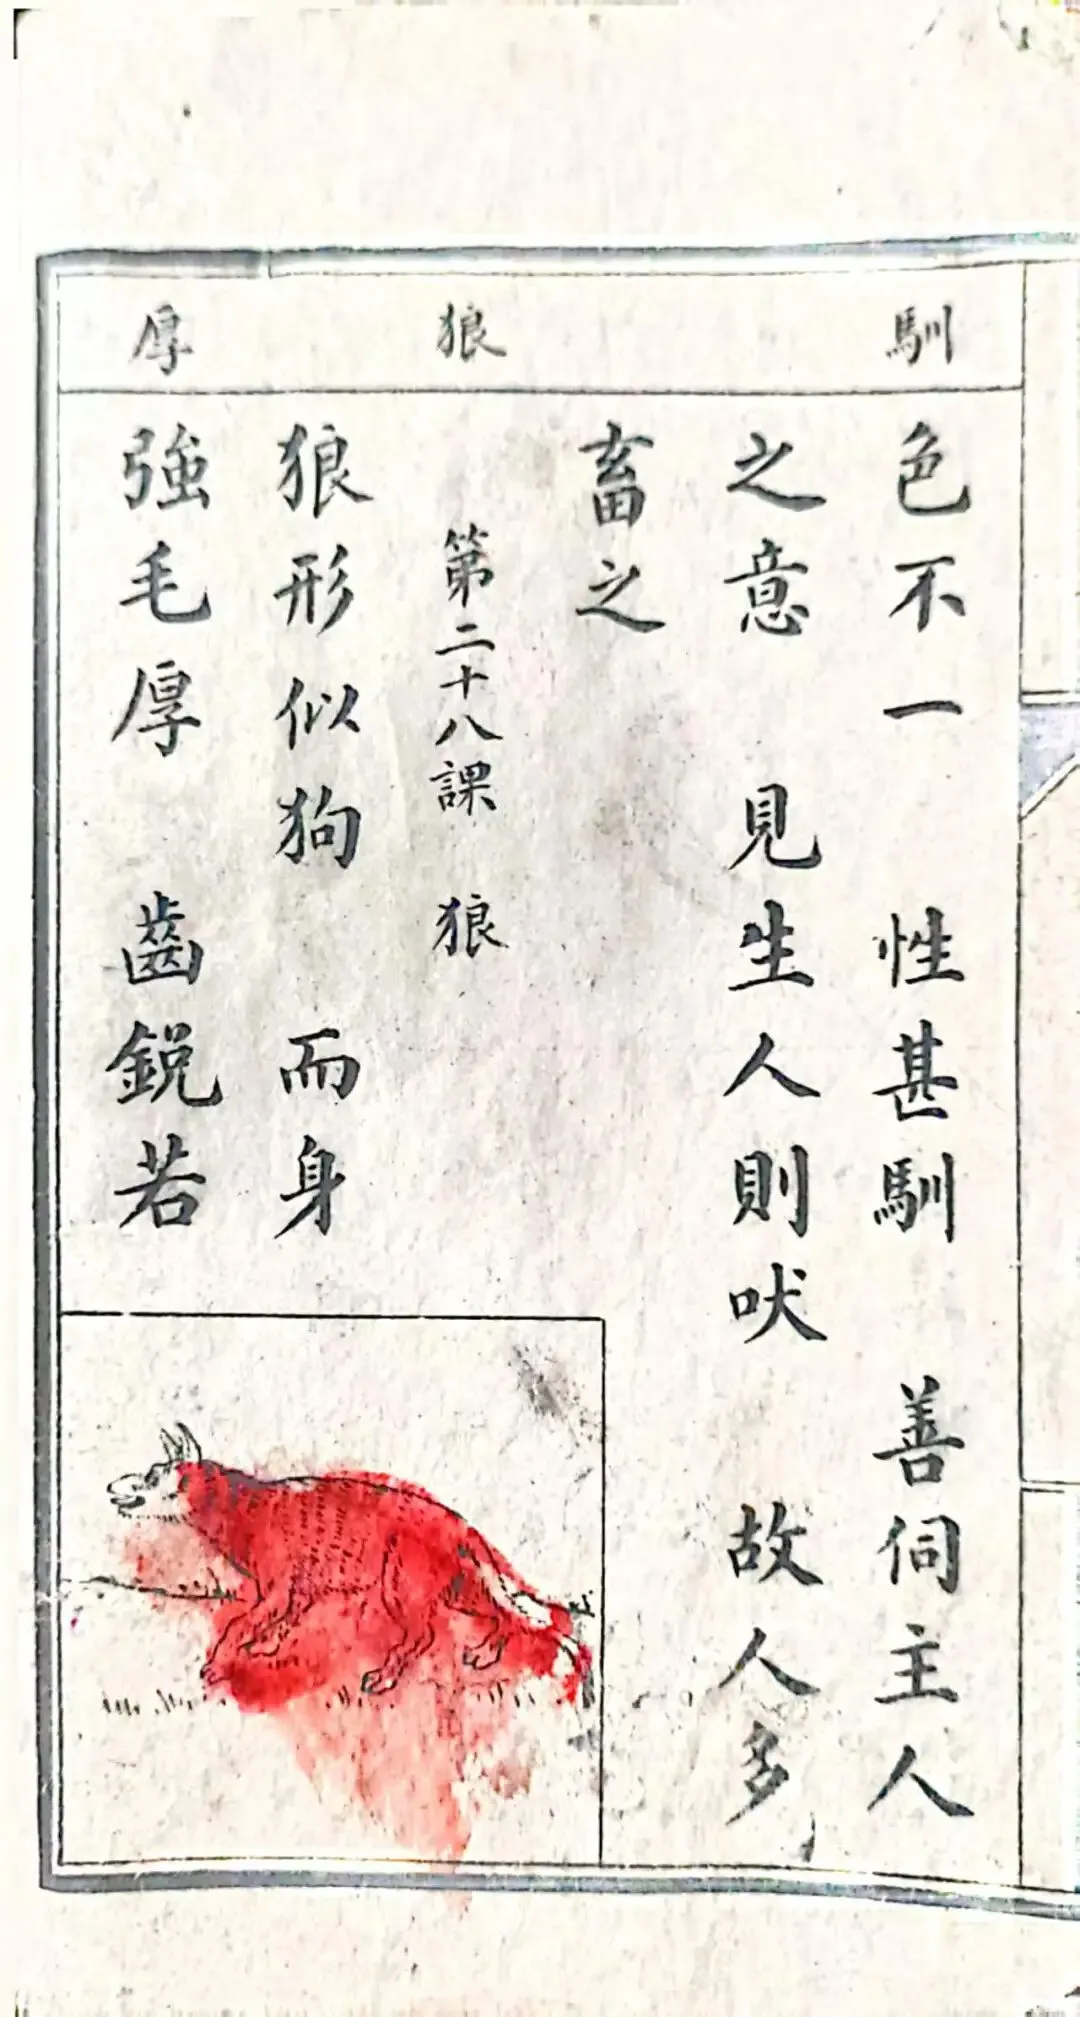 馴
色不一　性甚馴　善伺主人
之意　見生人則吠　故人多
畜之
狼
第二十八課　狼
狼形似狗　而身
厚
強毛厚　齒銳若